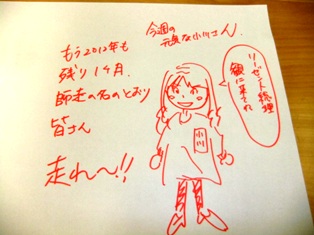 今週の
元気な小川さん
もう2012年も
残り1ヶ月.
師走の名のとおり
皆さん
走れ〜!!
リーゼント総理
観に来てね
小川